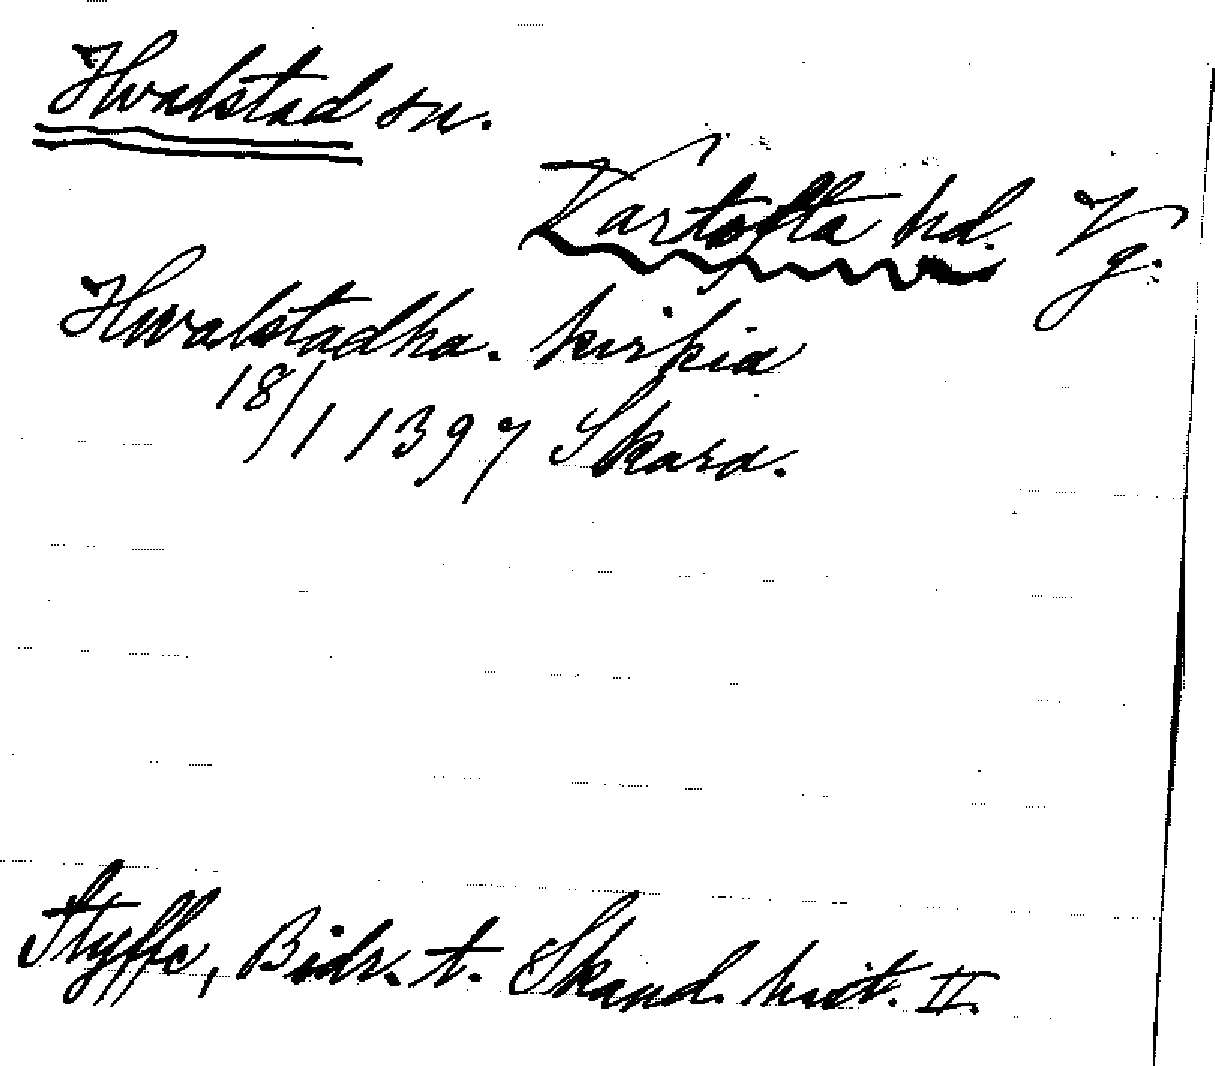 Hvalstad sn.
Kartofta hd. Vg.
Hwalstadha. kirkia
18/1 1397 Skara.
Styffe, Bidr. t. Skand. hist. II.